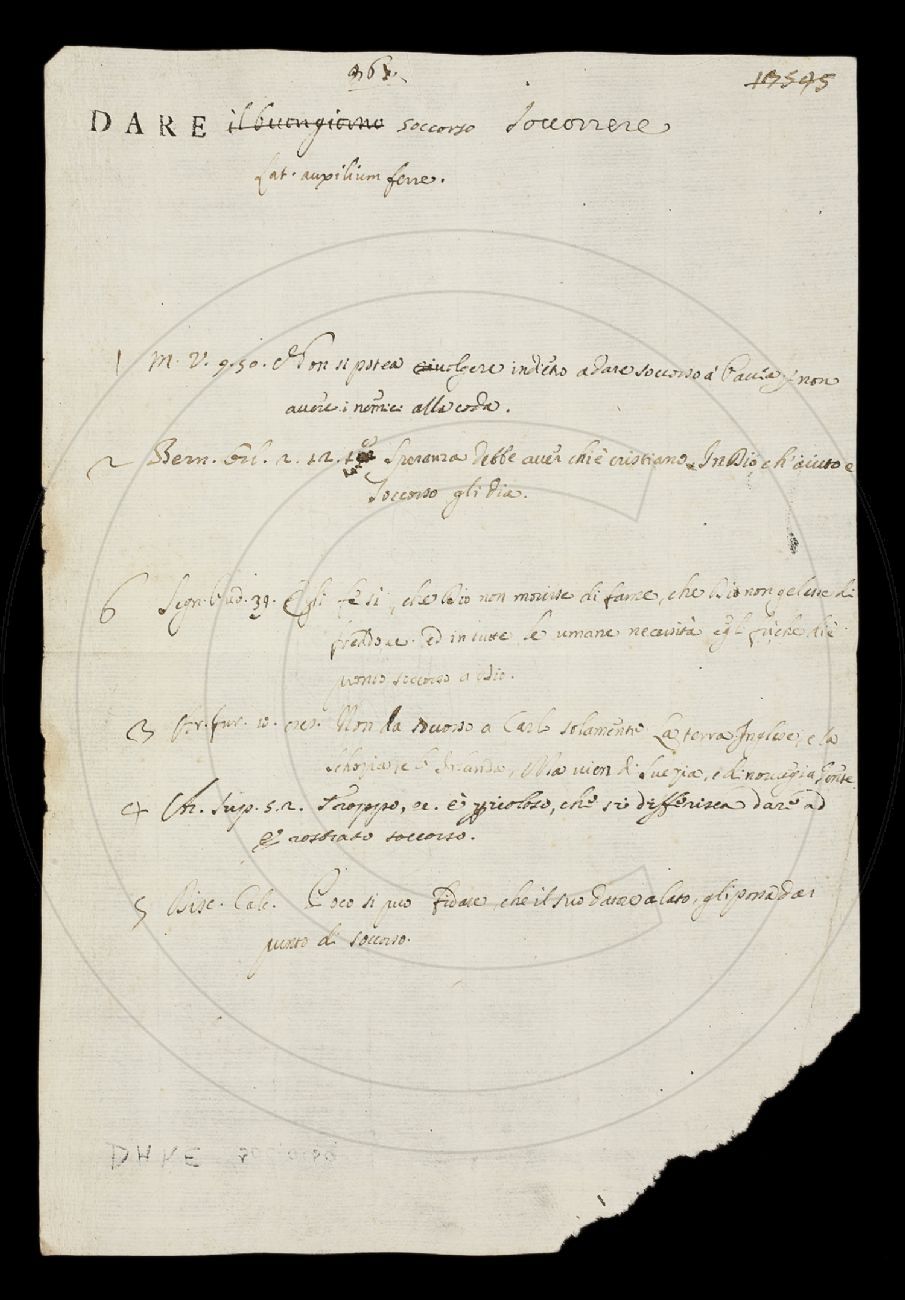 17545
DARE il buongiorno soccorso Soccorrere
Lat. auxilium ferre.
1 M. V. 9. 50. Non si potea volgere indrieto a dare soccorso a Pavia, non
avere i nemici alla coda.
2 Bern. Orl. 2. 12. Speranza debbe aver chi è cristiano, In Dio, ch' aiuto e
Soccorso gli dia.
6 Segn. 39. Egli fe sì, che non morisse di fame, che non gelasse di
freddo, e ed in tutte le umane necessità egli fu che diè
pronto soccorso a
3 fur. 10. Non dà soccorso a Carlo solamente La terra Inglese, e la
Schozia, e l' Irlanda, Ma vien di Svezia, e di norvegia gente
4 5. 2. Troppo, ec. è pericoloso, che si differisca dare ad
nostrato soccorso.
5 Disc. Calc. Poco si può fidare, che il suo datore a lato, gli possa dar
punto di soccorso.
DARE